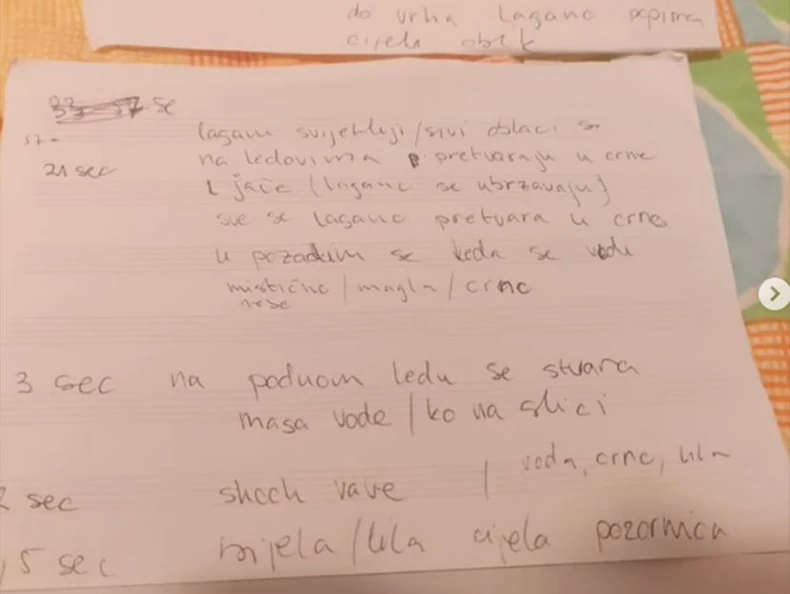 do vrha lagano popima
cijela obik
33 - 57 se
57 -
21 sec
lagani svijetliji/sivi oblaci se
na ledovima pretvaraju u crne
i jače (lagano se ubrzavaju)
sve se lagano pretvara u crno
u pozadini se kada se vodi
mistično / magla / crno
nese
3 sec na podnom ledu se stvara
masa vode / ko na slici
sec shock vave / voda, crno, lila
5 sec bijela/lila cijela pozornica